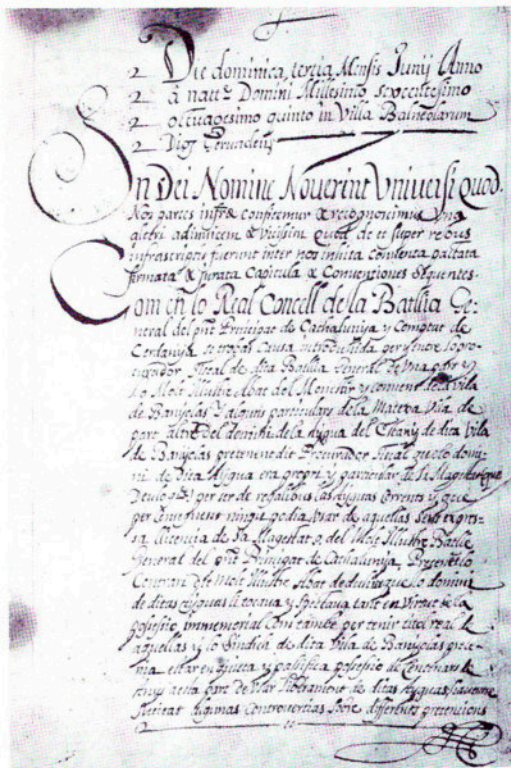 Die dominica tercia Mensis Junij Anno
à natte Domini Millesimo sexcentesimo
octuagesimo quinto in Villa Balneolarum
Diog Gerunden
In Dei Nomine Noverint Universi quod.
Nos partes infrae confitemur & recognoscimus Una
alteri adinvicem & vicissim quod de et super rebus
infrascriptis fuerunt inter nos inhita conventa pactata
firmata & jurata Capitula & Conventiones sequentes.
Com en lo Real Concell de la Batllia Ge-
neral del pnt Principat de Cathalunya y Comptat de
Cerdanya se tropia causa introduhida per y entre lo pro-
curador Fiscal de dita Batllia General de Una part y
lo Molt Illustre Abat del Monestir y convent de la vila
de Banyolas y alguns particulars de la Matexa Vila de
part altre del domini de la Aygua del Estany de dita Vila
de Banyolas pretenent dit Procurador Fiscal que lo domi-
ni de Dita Aygua era propri y particular de Sa Magestat que
Deu per ser de regalias las Ayguas corrents y que
per conseguent ningu podia usar de aquellas sens expres-
sa llicencia de Sa Magestat o del Molt Illustre Batlle
General del pnt Principat de Cathalunya, Pretenent lo
Contrari dit Molt Illustre Abat que lo domini
de ditas Ayguas li tocava y spectava tant en Virtut de la
possessio immemorial com tambe per tenir
aquellas y lo Sindich de dita Vila de Banyolas
estar en quieta y pasifica possessio de
part de Usar lliberament de ditas Ayguas
algunas Controversias sobre differents pretencions